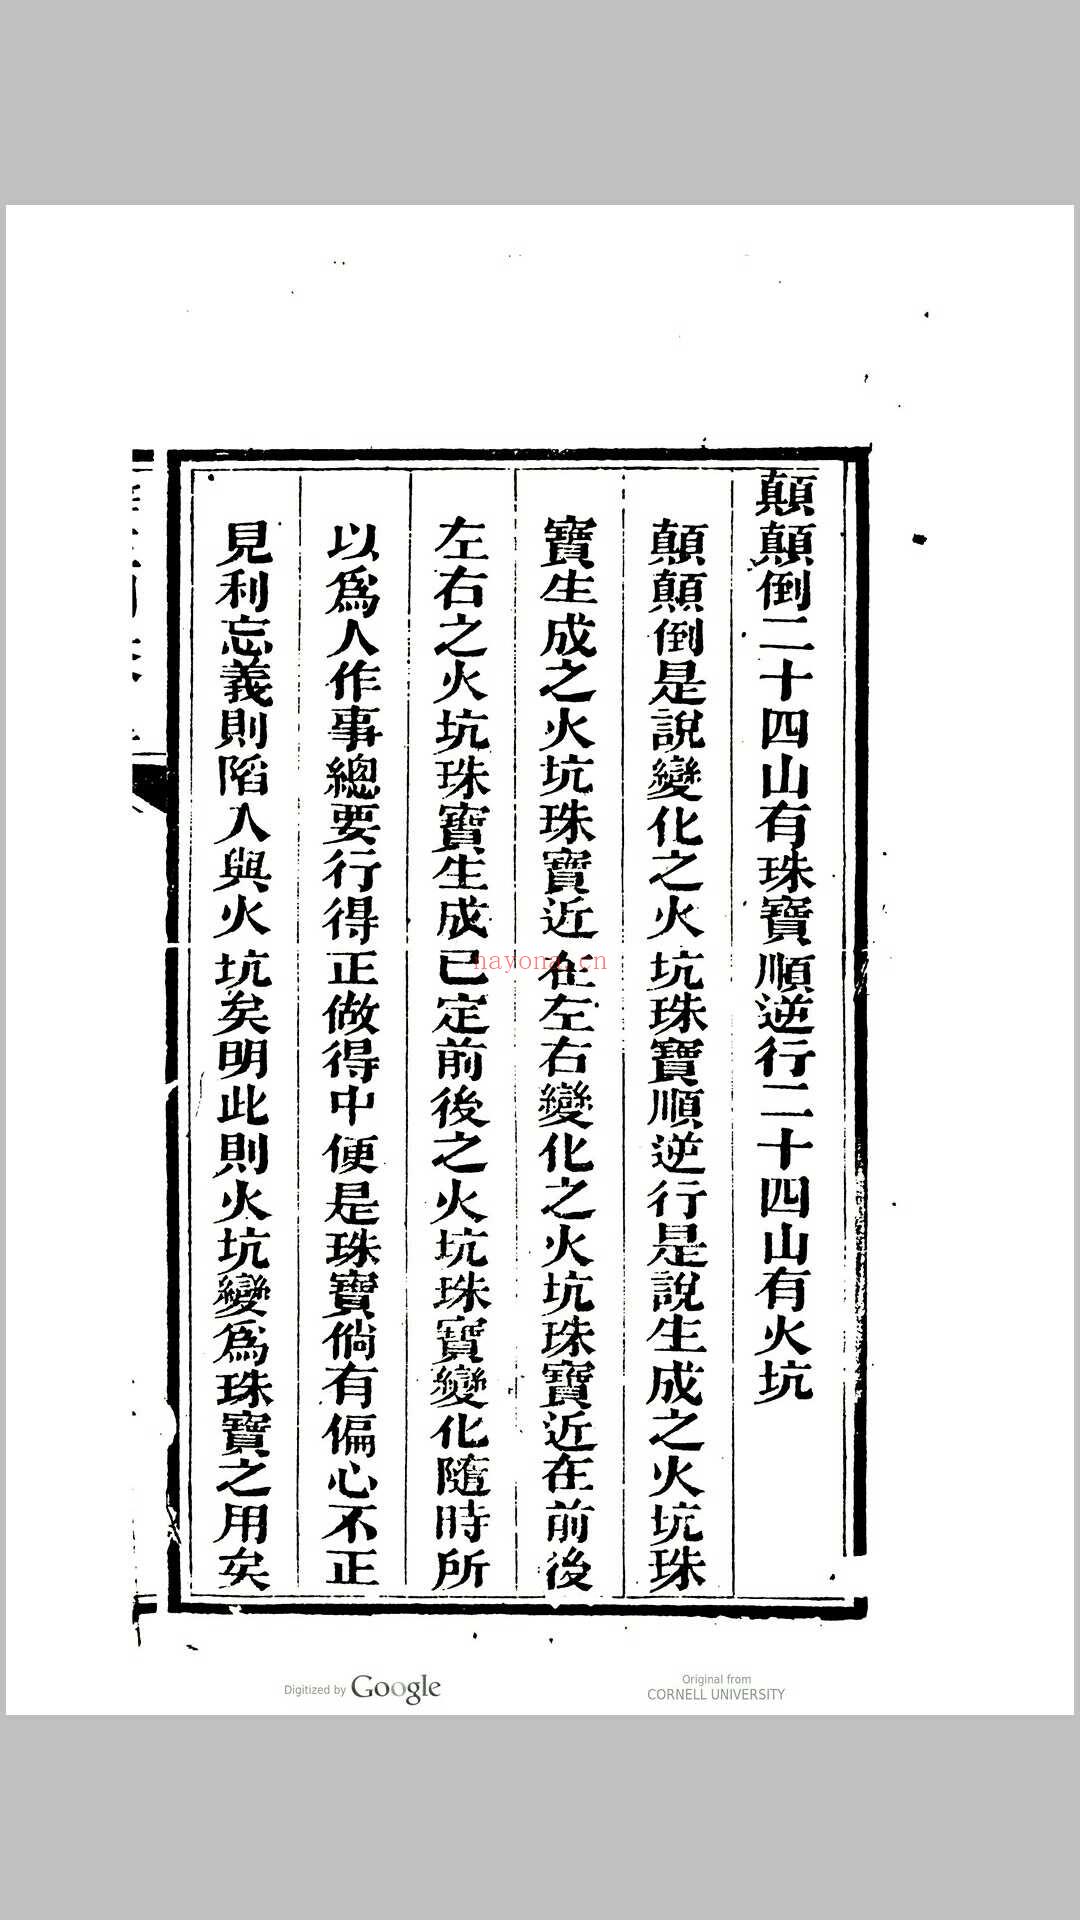 顛顛倒二十四山有珠寶順逆行二十四山有火坑
顛顛倒是說變化之火坑珠寶順逆行是說生成之火坑珠
寶生成之火坑珠寶近在左右變化之火坑珠寶近在前後
左右之火坑珠寶生成已定前後之火坑珠寶變化隨時所
以爲人作事總要行得正做得中便是珠寶倘有偏心不正
見利忘義則陷人與火坑矣明此則火坑變爲珠寶之用矣
nayona.cn
Digitized by Google
Original from
CORNELL UNIVERSITY